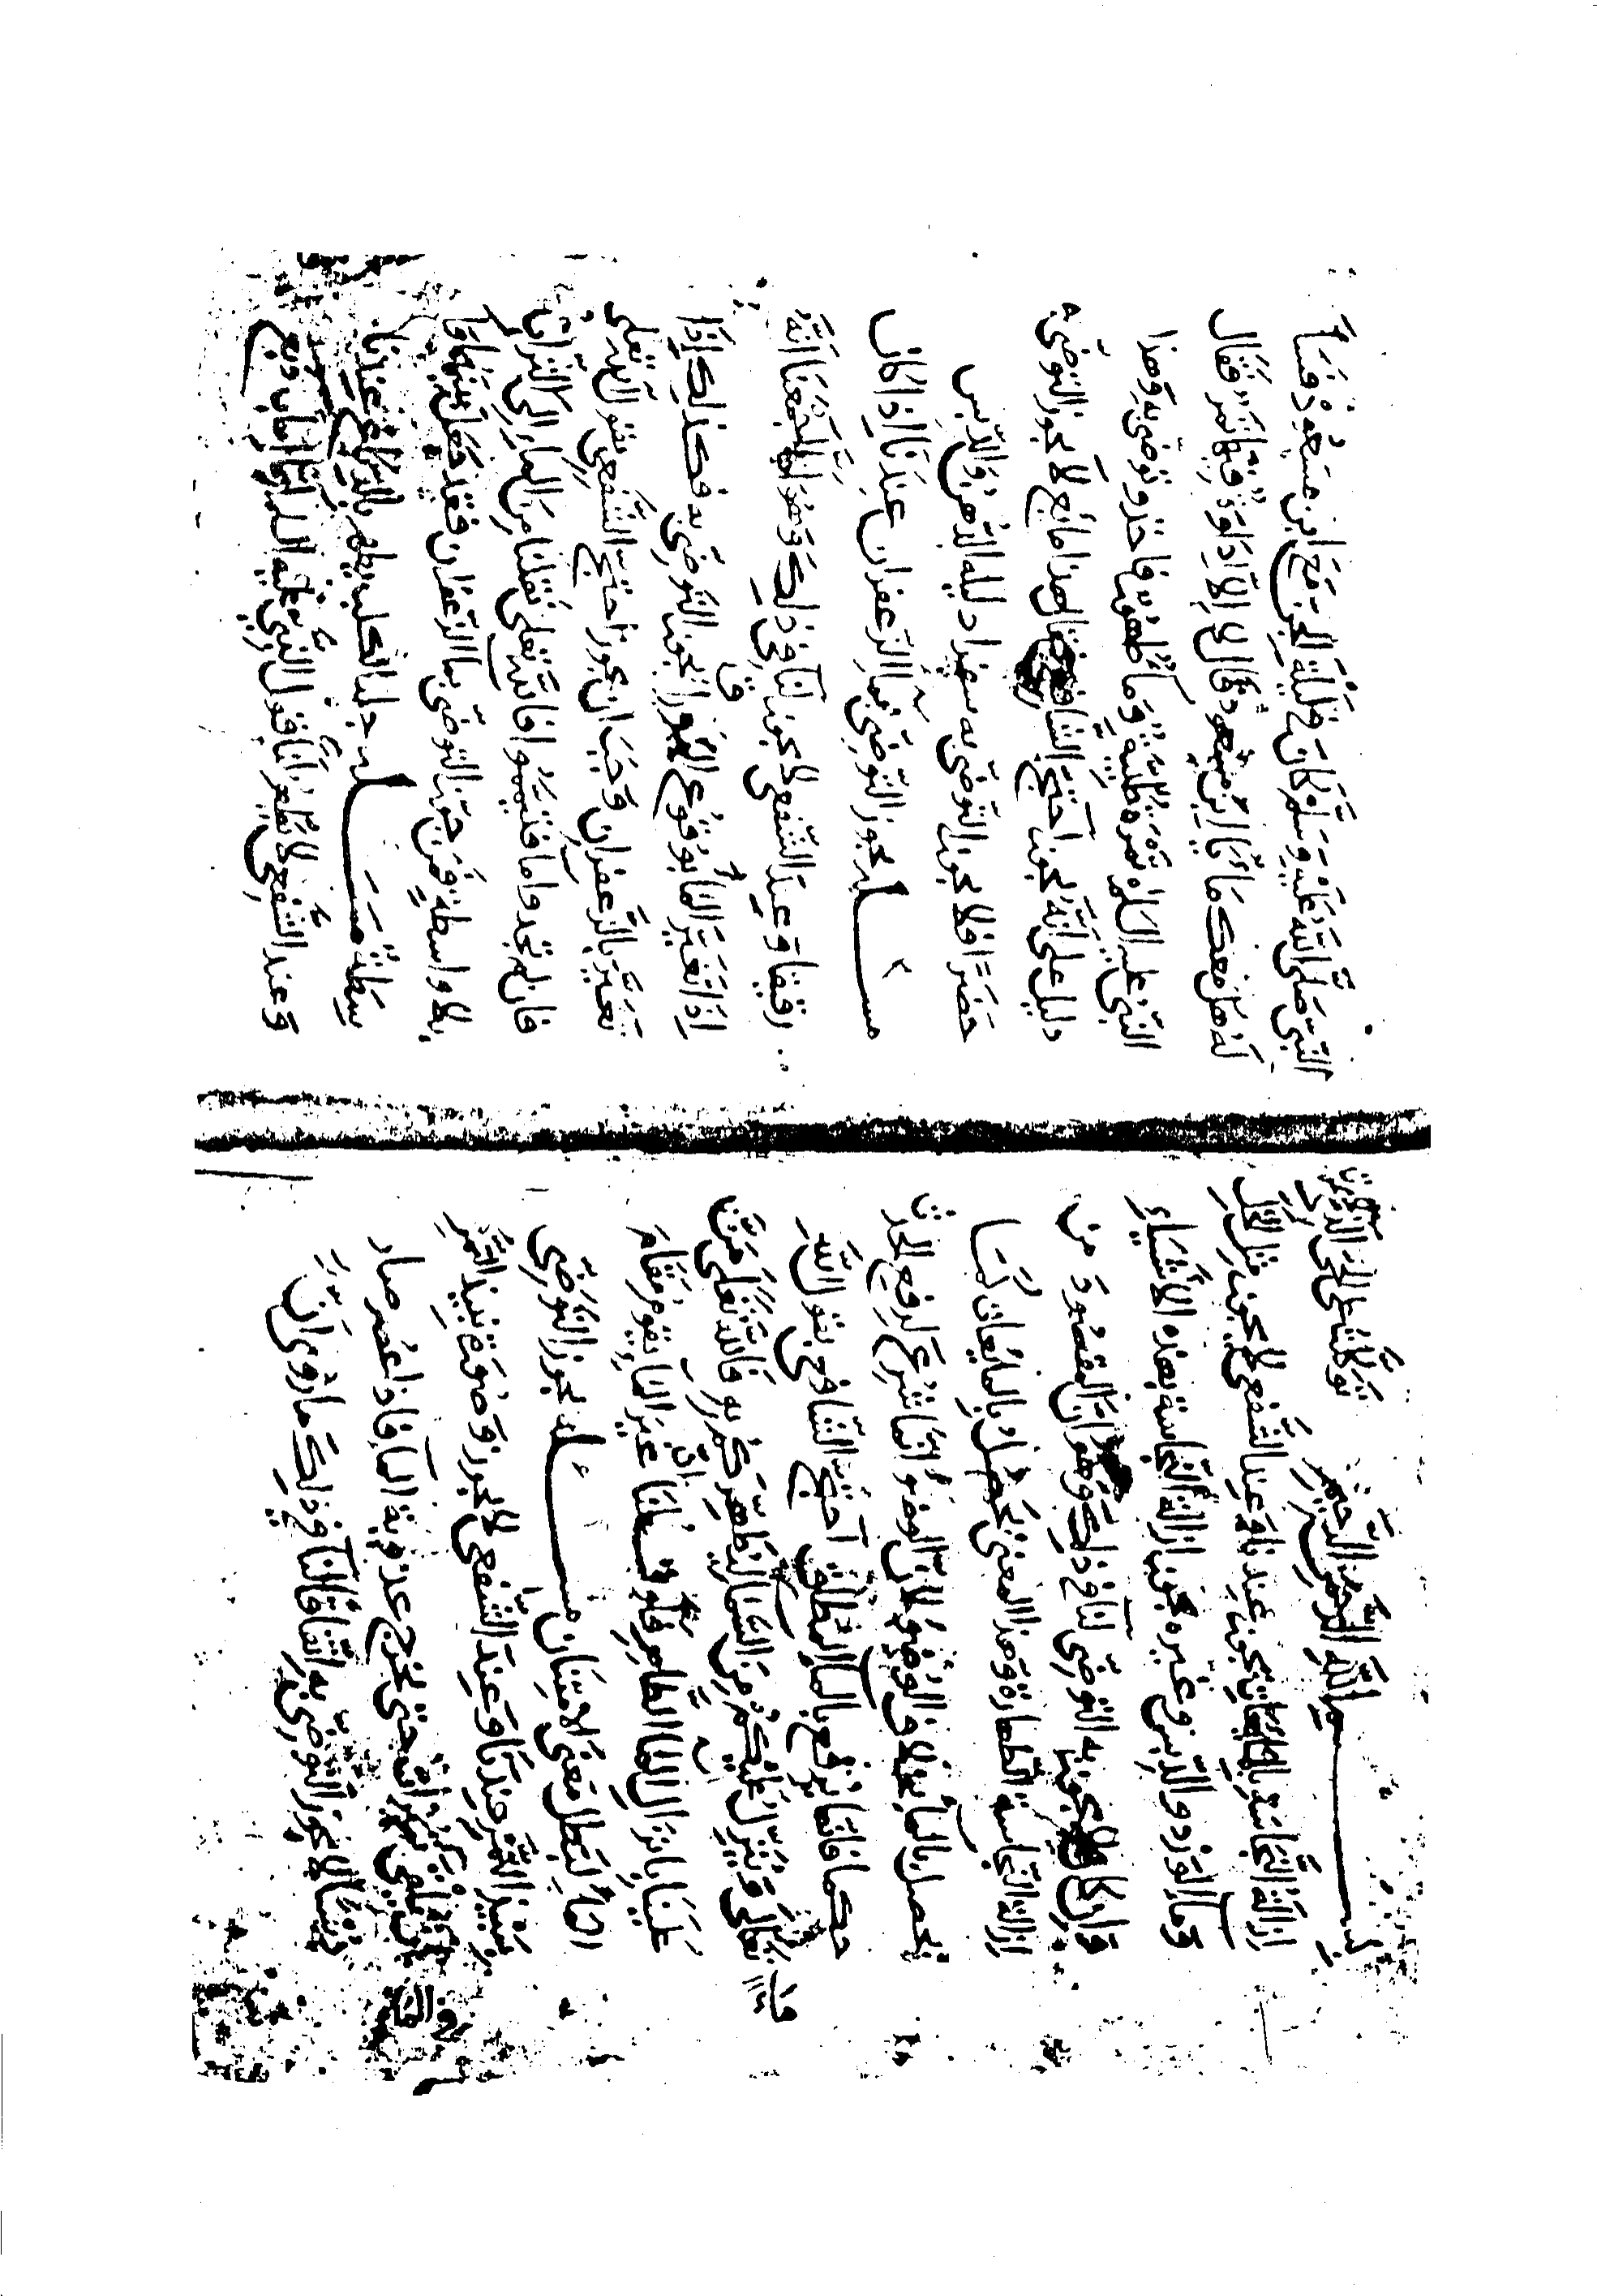 بسم الله الرحمن الرحيم توكلت على الحي الذي
ازالة النجاسة بالمايعات يجوز عندنا وعند الشفعي لا يجوز مثل الخل
وما الورد والدبس وغيره يجوز ازالة النجاسة بهذه الاشياء
وان كان لا يجوز به التوضي لنا في ذلك وهو ان المقصود من
ازالة النجاسة الطهارة وهذا المعنى يحصل بالمايعات كما
يحصل بالما بخلاف الوضوء لان الوضوء انما شرع لرفع الحدث
حكما فانما يرفع بالما المطلق احتج الشافعي بقول الله
تعالى وينزل عليكم من السما ليطهركم به فالله تعالى من
علينا بانزال الما الطاهر فلو قلنا ان غير الماء يقوم مقام
الماء لبطل معنى الامتنان مسله يجوز التوضي
بنبيذ التمر عندنا وعند الشفعي لا يجوز وصورة نبيذ التمر
ان يلقى تميرات حتى يخرج عذوبة الما فاذا عصر صار
دبسا لا يجوز التوضي به اتفاقا لنا في ذلك ما روي ان
النبي صلى الله عليه وسلم كان في ليلة الجن مع ابن مسعود
له هل معك ما يا ابن مسعود قال لا الا اداوة فيها تمر فقال
النبي عليه السلام تمرة طيبة وما طهور فاخذ وتوضى به وهذا
دليل على انه يجوز احتج الشافعي قال هذا مايع لا يجوز التوضيء
حضرا فلا يجوز التوضي به سفرا دليله الدهن والدبس
مسله يجوز التوضي بما الزعفران عندنا اذا كان
رقيقا وعند الشفعي لا يجوز لنا في ذلك وهو اجمعنا انه
اذا تغير الما بوقوع الاوراق يجوز التوضي به فكذلك اذا
تغير بالزعفران وجب ان يجوز احتج الشفعي بقوله تعالى
فان لم تجدوا ما فتيمموا فالله تعالى نقلنا من الماء الى التراب
بلا واسطة فمن جوز التوضي بما الزعفران فقد جعل بينهما وا
سطة مسله جلد الكلب يطهر بالدباغ عندنا
وعند الشفعي لا يطهر لنا قول النبي عليه السلام ايما اهاب دبغ